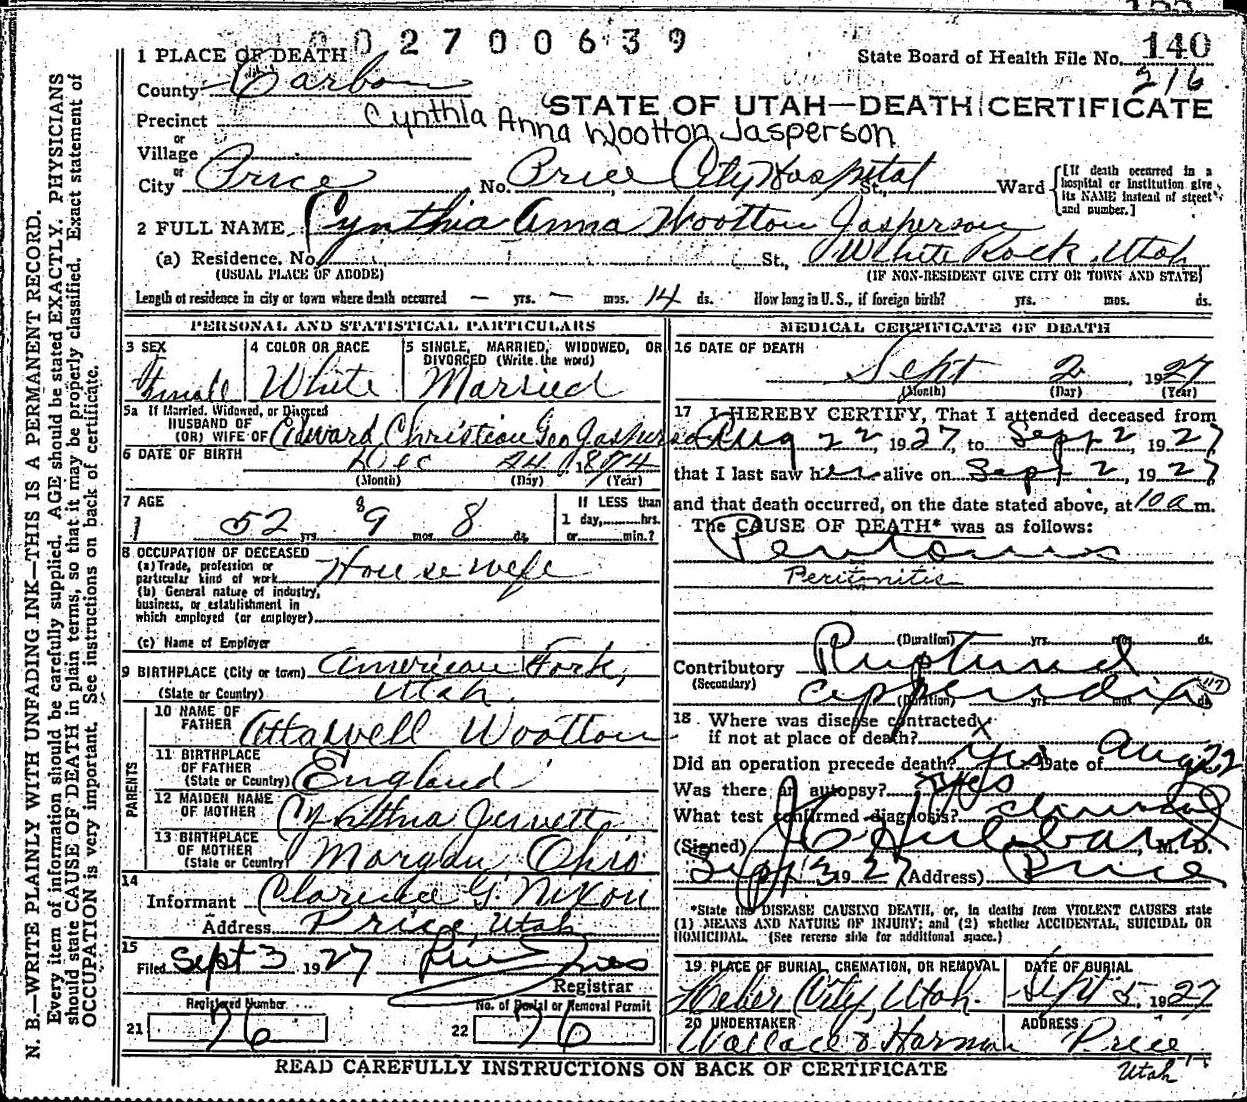 155
0 0 2 7 0 0 6 3 9
1 PLACE OF DEATH
State Board of Health File No. 140
216
County Carbon
STATE OF UTAH—DEATH CERTIFICATE
Precinct
Cynthia Anna Wootton Jasperson
or
Village
or
City Price No. Price City Hospital St., Ward
[If death occurred in a hospital or institution give its NAME instead of street and number.]
2 FULL NAME Cynthia Anna Wootton Jasperson
(a) Residence. No. St., White Rock, Utah
(USUAL PLACE OF ABODE) (IF NON-RESIDENT GIVE CITY OR TOWN AND STATE)
Length of residence in city or town where death occurred — yrs. — mos. 14 ds. How long in U. S., if foreign birth? yrs. mos. ds.
PERSONAL AND STATISTICAL PARTICULARS
3 SEX
4 COLOR OR RACE
5 SINGLE, MARRIED, WIDOWED, OR DIVORCED (Write the word)
Female White Married
5a If Married, Widowed, or Divorced
HUSBAND OF
(OR) WIFE OF Edward Christian Geo Jasperson
6 DATE OF BIRTH Dec 24 1874
(Month) (Day) (Year)
7 AGE
If LESS than
52 yrs. 8 9 mos. 8 ds.
1 day,........hrs.
or........min.?
8 OCCUPATION OF DECEASED
(a) Trade, profession or
particular kind of work Housewife
(b) General nature of industry,
business, or establishment in
which employed (or employer)
(c) Name of Employer
9 BIRTHPLACE (City or town) American Fork,
(State or Country) Utah
PARENTS
10 NAME OF
FATHER Attawell Wootton
11 BIRTHPLACE
OF FATHER
(State or Country) England
12 MAIDEN NAME
OF MOTHER Cynthia Jewett
13 BIRTHPLACE
OF MOTHER
(State or Country) Morgan, Ohio
14
Informant Clarence G. Nixon
Address Price, Utah
15
Filed Sept 3 1927
Registrar
Registered Number
No. of Burial or Removal Permit
21 76
22 76
MEDICAL CERTIFICATE OF DEATH
16 DATE OF DEATH
Sept 2, 1927
(Month) (Day) (Year)
17 I HEREBY CERTIFY, That I attended deceased from
Aug 22, 1927, to Sept 2, 1927,
that I last saw her alive on Sept 2, 1927
and that death occurred, on the date stated above, at 10 a m.
The CAUSE OF DEATH* was as follows:
Peritonitis
Peritonitis
(Duration) yrs. mos. ds.
Contributory Ruptured
(Secondary) appendix 117
(Duration) yrs. mos. ds.
18 Where was disease contracted
if not at place of death? x
Did an operation precede death? Yes Date of Aug 22
Was there an autopsy? Yes
What test confirmed diagnosis? clinical
(Signed) J C Hubbard, M. D.
Sept 3 1927 (Address) Price
*State the DISEASE CAUSING DEATH, or, in deaths from VIOLENT CAUSES state
(1) MEANS AND NATURE OF INJURY; and (2) whether ACCIDENTAL, SUICIDAL OR
HOMICIDAL. (See reverse side for additional space.)
19 PLACE OF BURIAL, CREMATION, OR REMOVAL
DATE OF BURIAL
Heber City, Utah. Sept 5, 1927
20 UNDERTAKER
ADDRESS
Wallace & Harmon Price
Utah
READ CAREFULLY INSTRUCTIONS ON BACK OF CERTIFICATE
N. B.—WRITE PLAINLY WITH UNFADING INK—THIS IS A PERMANENT RECORD.
Every item of information should be carefully supplied. AGE should be stated EXACTLY. PHYSICIANS
should state CAUSE OF DEATH in plain terms, so that it may be properly classified. Exact statement of
OCCUPATION is very important. See instructions on back of certificate.